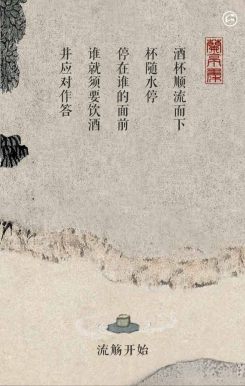 酒杯顺流而下
杯随水停
停在谁的面前
谁就须要饮酒
并应对作答
流觞开始